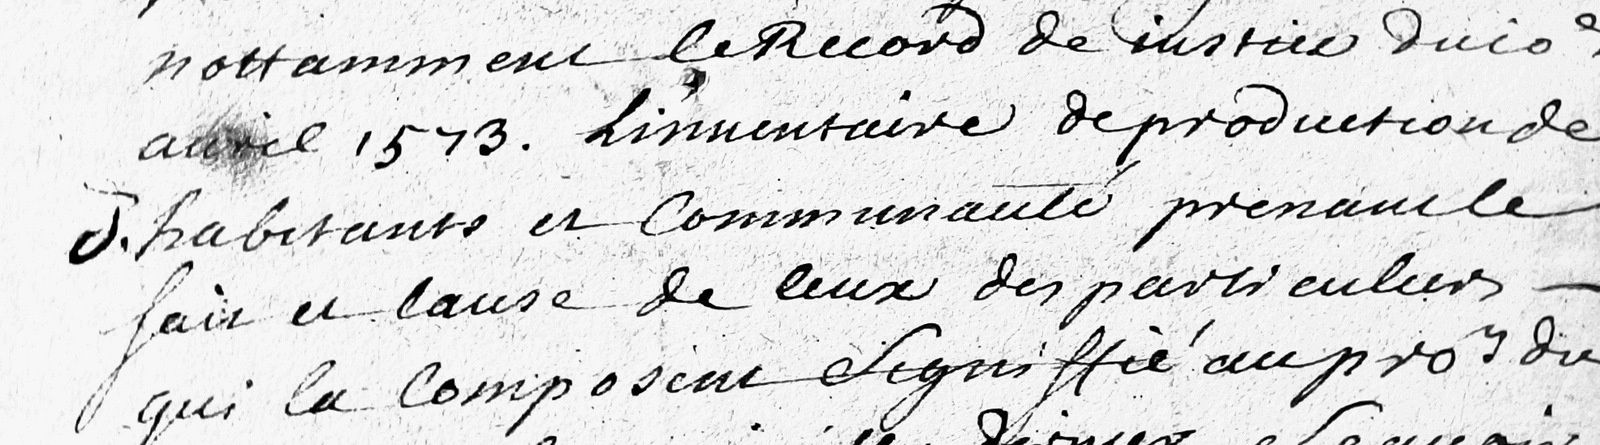 nottamment le Record de justice du 10e
auril 1573. L'inuentaire de production de
d. habitants et Communauté prenant le
fait et cause de ceux des particuliers
qui la composent Signiffié au pror du
dernier